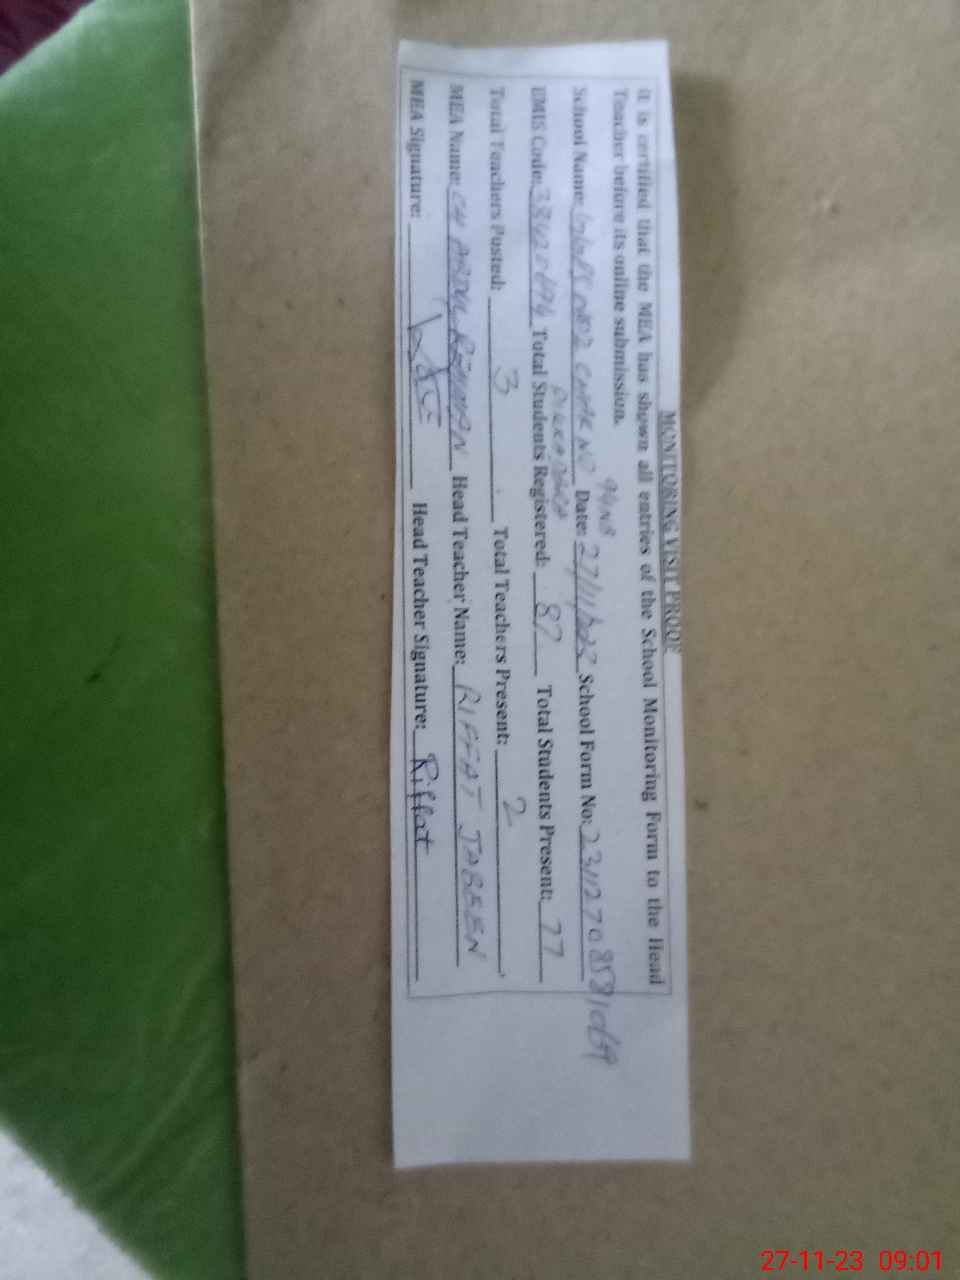 MONITORING VISIT PROOF
It is certified that the MEA has shown all entries of the School Monitoring Form to the Head
Teacher before its online submission.
94NB
School Name: CHAK NO Date: 27/11/2023 School Form No:
EMIS Code: Total Students Registered: 87 Total Students Present: 77
Total Teachers Posted: 3 Total Teachers Present: 2
MEA Name: CH ABDUL REHMAN Head Teacher Name: RIFFAT JABEEN
MEA Signature: Head Teacher Signature: Riffat
27-11-23 09:01